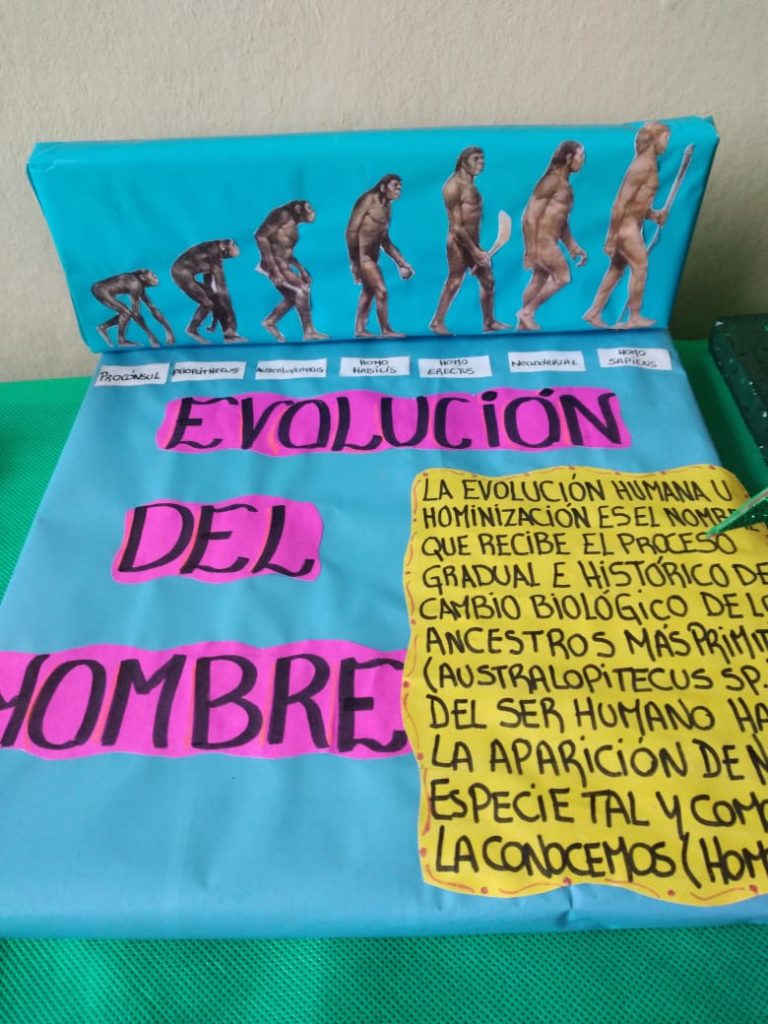 PROCÓNSUL
AUSTRALOPITECUS
HOMO
HABILIS
HOMO
ERECTUS
Neanderthal
HOMO
SAPIENS
EVOLUCIÓN
DEL
HOMBRE
LA EVOLUCIÓN HUMANA U
HOMINIZACIÓN ES EL NOMBRE
QUE RECIBE EL PROCESO
GRADUAL E HISTÓRICO DE
CAMBIO BIOLÓGICO DE
ANCESTROS MÁS
(AUSTRALOPITECUS SP.
DEL SER HUMANO
LA APARICIÓN DE
ESPECIE TAL Y COMO
LA CONOCEMOS